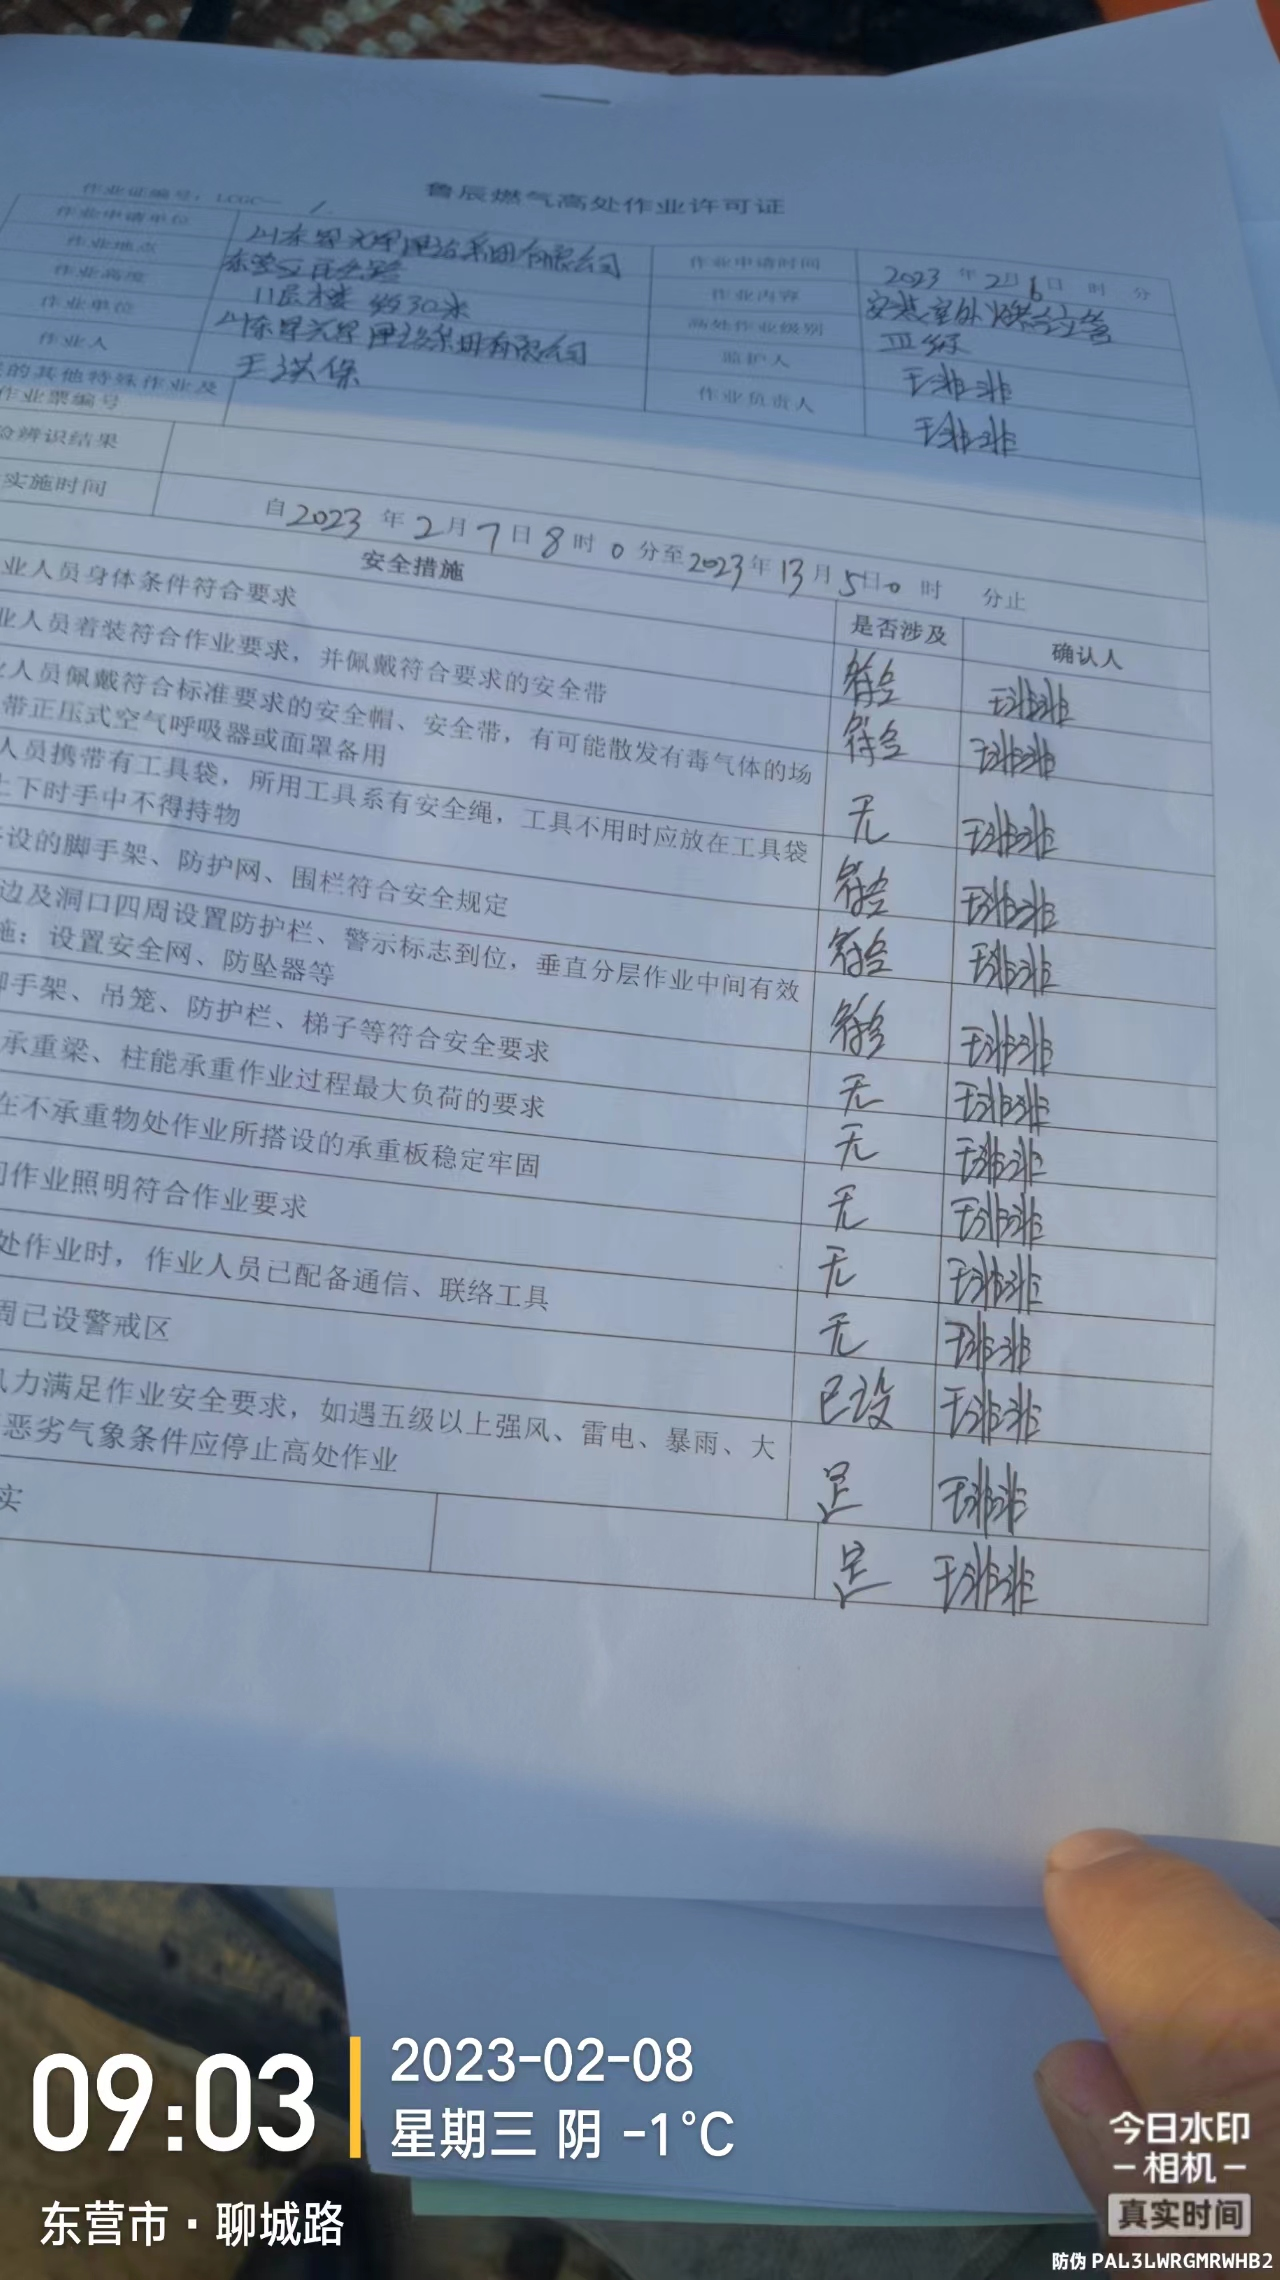 鲁辰燃气高处作业许可证
作业证编号：LCGC— /
作业申请单位 山东 有限公司 作业申请时间 2023 年 2 月 6 日 时 分
作业地点 东营区 作业内容 安装室外燃气立管
作业高度 11层楼 约30米 高处作业级别 III级
作业单位 山东 有限公司 监护人 王非非
作业人 王洪保 作业负责人 王非非
的其他特殊作业及
作业票编号
辨识结果
实施时间 自2023 年 2 月 7 日 8 时 0 分至2023 年 13 月 5 日 0 时 分止
安全措施 是否涉及 确认人
业人员身体条件符合要求 符合 王非非
业人员着装符合作业要求，并佩戴符合要求的安全带 符合 王非非
人员佩戴符合标准要求的安全帽、安全带，有可能散发有毒气体的场
带正压式空气呼吸器或面罩备用 无 王非非
人员携带有工具袋，所用工具系有安全绳，工具不用时应放在工具袋
上下时手中不得持物 符合 王非非
设的脚手架、防护网、围栏符合安全规定 符合 王非非
边及洞口四周设置防护栏、警示标志到位，垂直分层作业中间有效
施：设置安全网、防坠器等 符合 王非非
脚手架、吊笼、防护栏、梯子等符合安全要求 无 王非非
承重梁、柱能承重作业过程最大负荷的要求 无 王非非
在不承重物处作业所搭设的承重板稳定牢固 无 王非非
间作业照明符合作业要求 无 王非非
处作业时，作业人员已配备通信、联络工具 无 王非非
周已设警戒区 已设 王非非
风力满足作业安全要求，如遇五级以上强风、雷电、暴雨、大
恶劣气象条件应停止高处作业 是 王非非
实 是 王非非
09:03
2023-02-08
星期三 阴 -1℃
东营市·聊城路
今日水印
相机
真实时间
防伪 PAL3LWRGMRWHB2